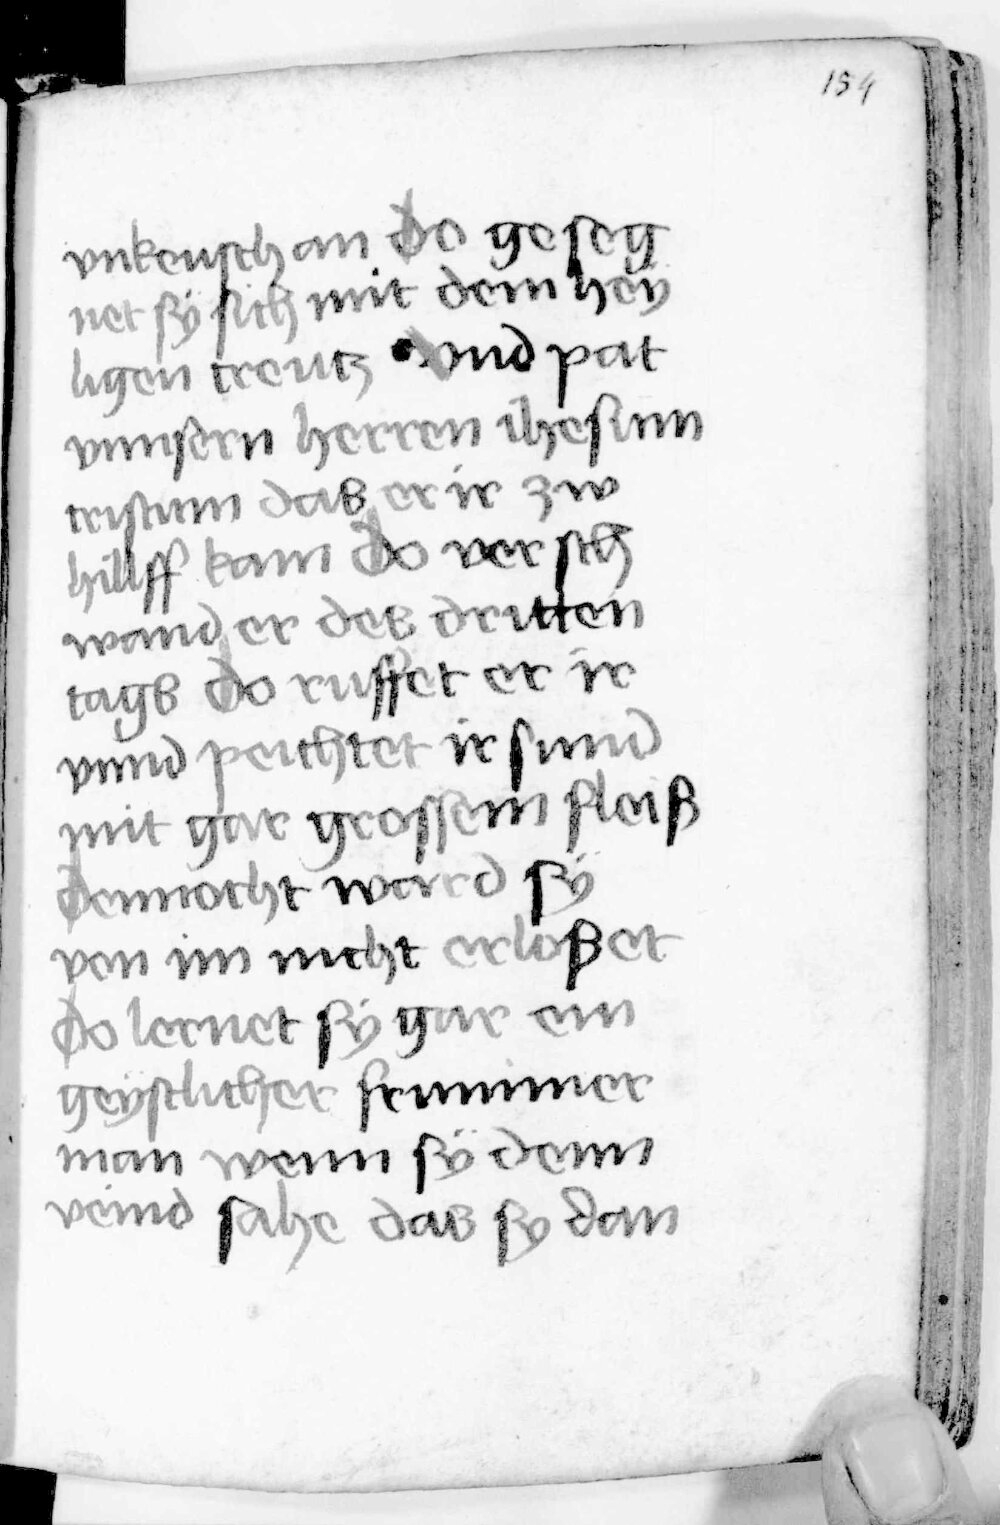 154
vnkeusch an do geseg
net sÿ sich mit dem heÿ
ligen creutz vnd pat
vnnsern herren ihesum
cristum das er ir zw
hillff kam do versch
wand er des dritten
tags do ruffet er ir
vnnd peichtet ir sund
mit gar grossem fleiß
dennocht ward sÿ
von im nicht erloßet
do lernet sÿ gar ein
geÿstlicher frummer
man wenn sÿ denn
veind sahe das sy dan